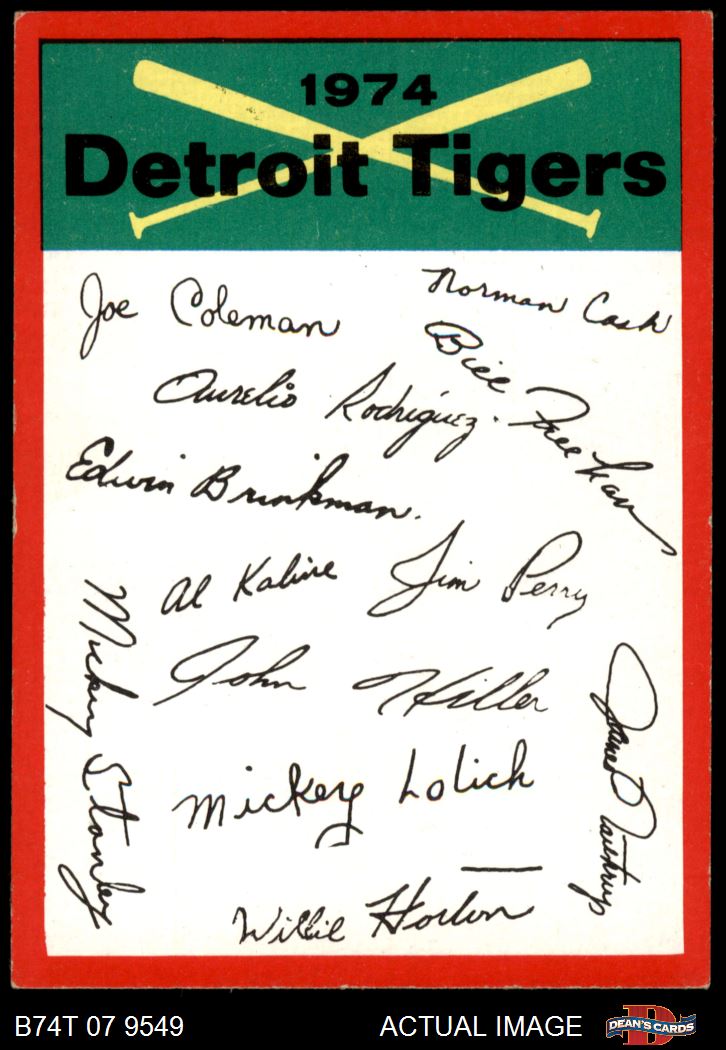 1974
Detroit Tigers
Joe Coleman
Norman Cash
Bill Freehan
Aurelio Rodriguez.
Edwin Brinkman.
Al Kaline
Jim Perry
Mickey Stanley
John Hiller
James Northrup
Mickey Lolich
Willie Horton
B74T 07 9549
ACTUAL IMAGE
D
DEAN'S CARDS